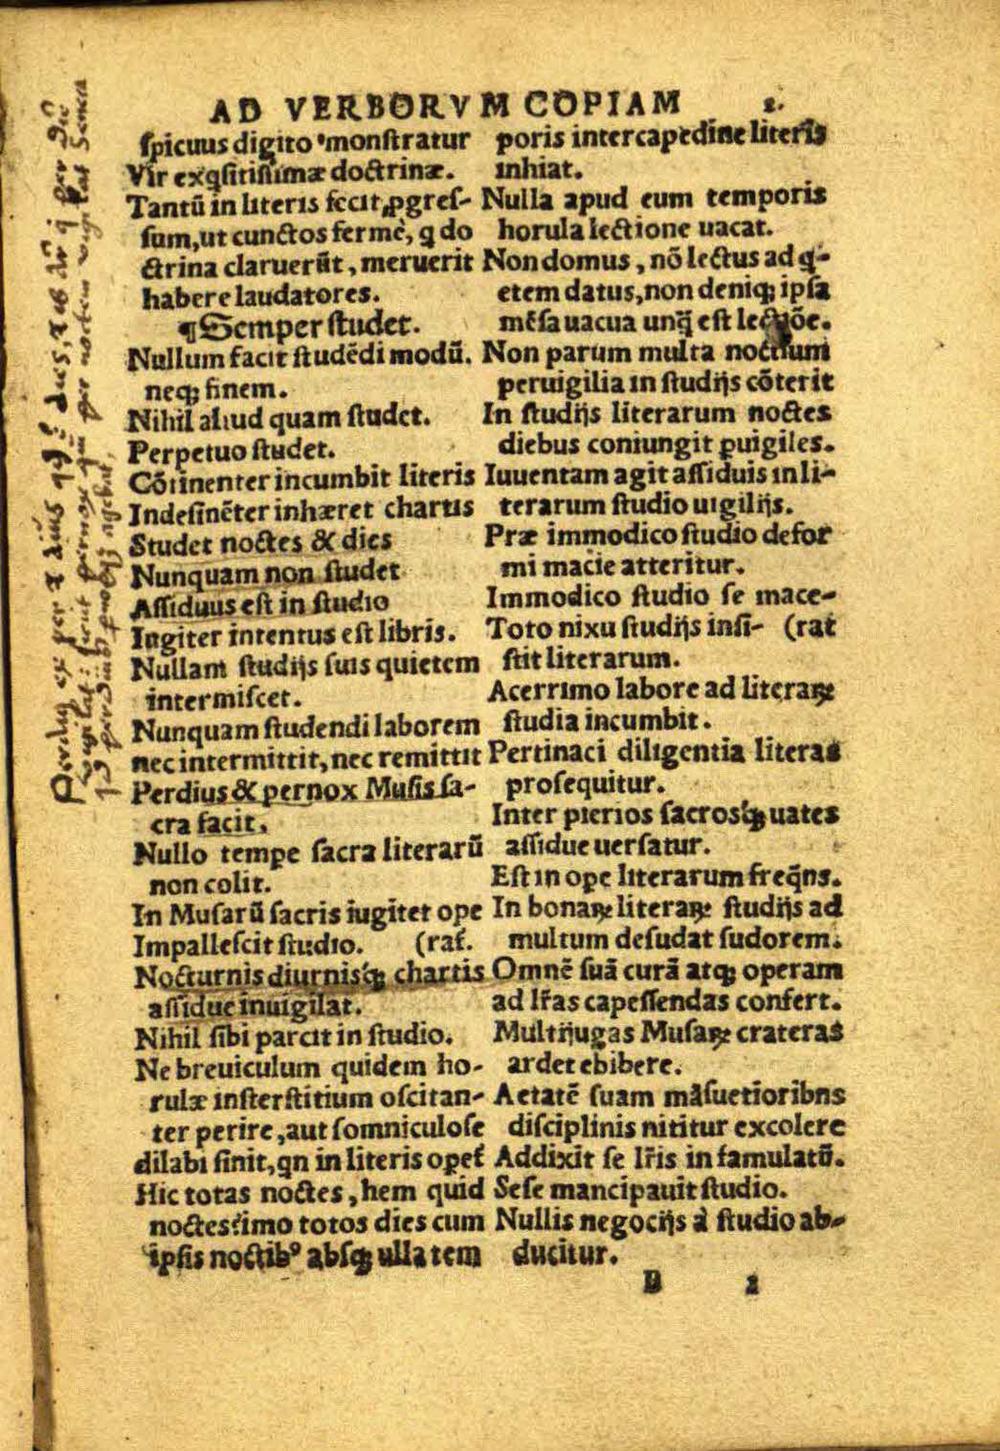 AD VERBORVM COPIAM 2.
ſpicuus digito monſtratur
Vir exqſitiſſimæ doctrinæ.
Tantũ in literis fecit, ꝓgreſ-
ſum, ut cunctos fermè, q do
ctrina claruerũt, meruerit
habere laudatores.
¶Semper ſtudet.
Nullum facit ſtudẽdi modũ.
neqꝫ finem.
Nihil aliud quam ſtudet.
Perpetuo ſtudet.
Cõtinenter incumbit literis
Indeſinẽter inhæret chartis
Studet noctes & dies
Nunquam non ſtudet
Aſſiduus eſt in ſtudio
Iugiter intentus eſt libris.
Nullam ſtudijs ſuis quietem
intermiſcet.
Nunquam ſtudendi laborem
nec intermittit, nec remittit
Perdius & pernox Muſis ſa-
cra facit.
Nullo tempe ſacra literarũ
non colit.
In Muſarũ ſacris iugiter ope
Impalleſcit ſtudio. (rat̃.
Nocturnis diurniſqꝫ chartis
aſſidue inuigilat.
Nihil ſibi parcit in ſtudio.
Ne breuiculum quidem ho-
rulæ inſterſtitium oſcitan-
ter perire, aut ſomniculoſe
dilabi ſinit, qn in literis operet̃
Hic totas noctes, hem quid
noctes? imo totos dies cum
ipſis noctibꝰ abſqꝫ ulla tem
poris intercapedine literis
inhiat.
Nulla apud eum temporis
horula lectione uacat.
Non domus, nõ lectus ad q-
etem datus, non deniqꝫ ipſa
mẽſa uacua unq̃ eſt lectiõe.
Non parum multa noctium
peruigilia in ſtudijs cõterit
In ſtudijs literarum noctes
diebus coniungit ꝑuigiles.
Iuuentam agit aſſiduis in li-
terarum ſtudio uigilijs.
Præ immodico ſtudio defor
mi macie atteritur.
Immodico ſtudio ſe mace-
Toto nixu ſtudijs inſi- (rat
ſtit literarum.
Acerrimo labore ad literaꝝ
ſtudia incumbit.
Pertinaci diligentia literas
proſequitur.
Inter pierios ſacroſqꝫ uates
aſſidue uerſatur.
Eſt in ope literarum freq̃ns.
In bonaꝝ literaꝝ ſtudijs ad
multum deſudat ſudorem.
Omnẽ ſuã curã atqꝫ operam
ad lr̃as capeſſendas confert.
Multijugas Muſaꝝ crateras
ardet ebibere.
Aetatẽ ſuam mãſuetioribns
diſciplinis nititur excolere
Addixit ſe lr̃is in famulatũ.
Seſe mancipauit ſtudio.
Nullis negocijs à ſtudio ab-
ducitur.
B 2